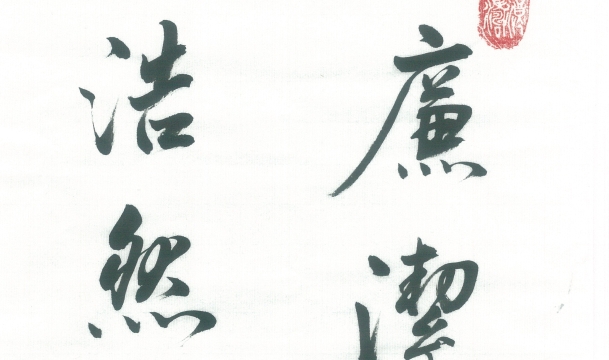 廉潔
浩然